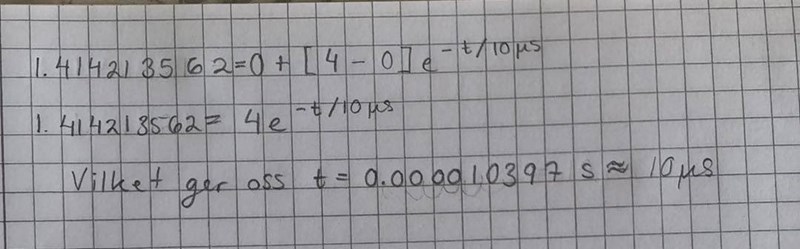 1.414213562=0+[4-0]e^-t/10μs
1.414213562= 4e^-t/10μs
Vilket ger oss t= 0.000010397 s ≈ 10μs